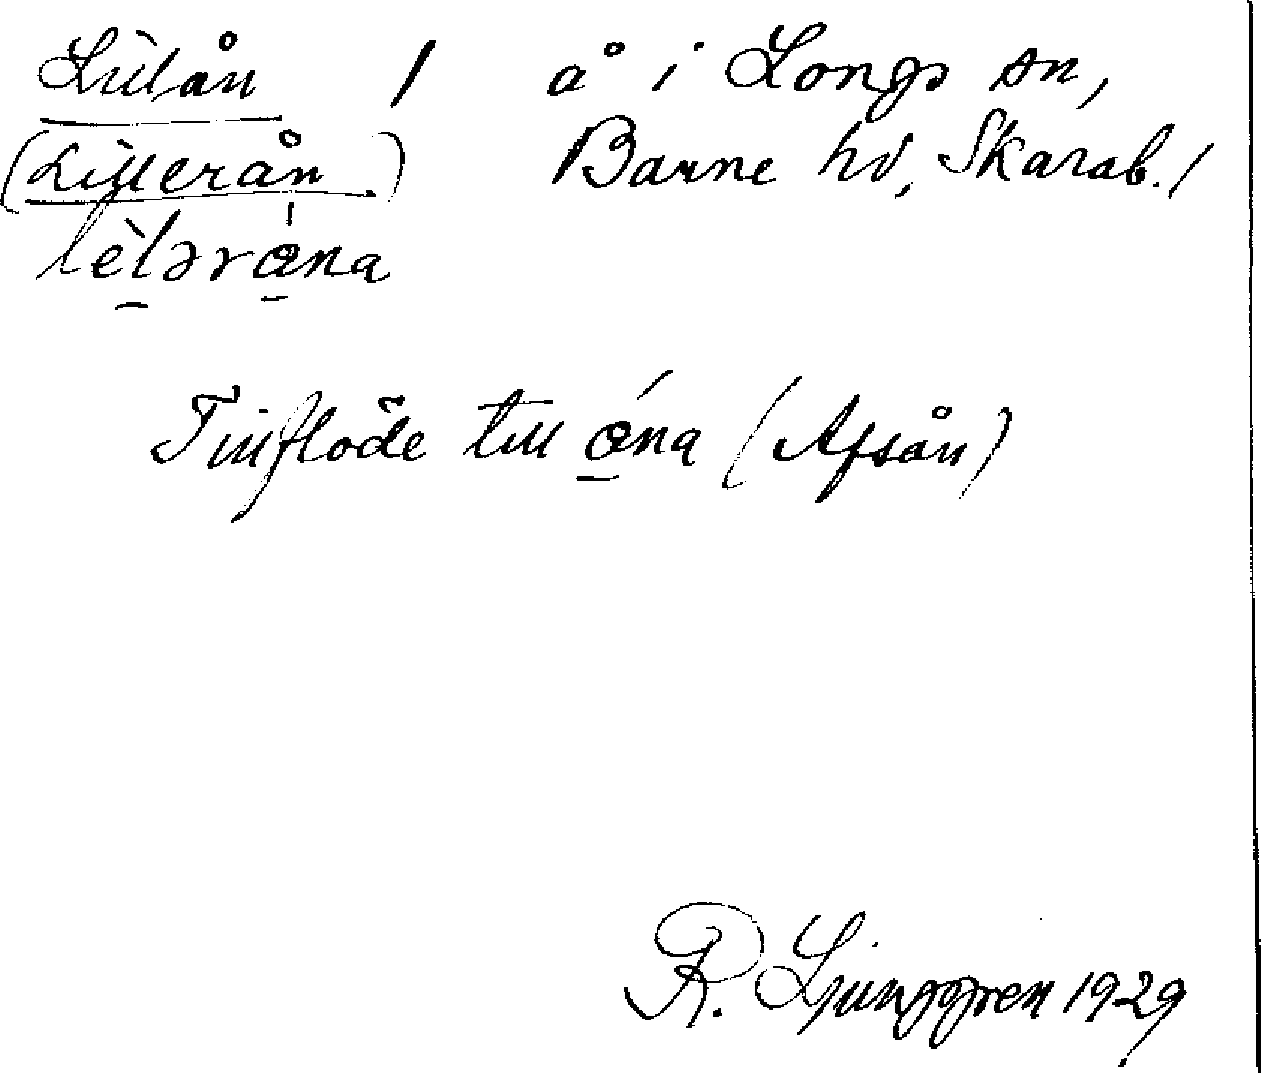 Lillån / å i Longs sn,
(Lillerån.) Barne hd, Skarab./
lèlərǻna
Tillflöde till ǻna (Afsån)
R. Ljunggren 1929